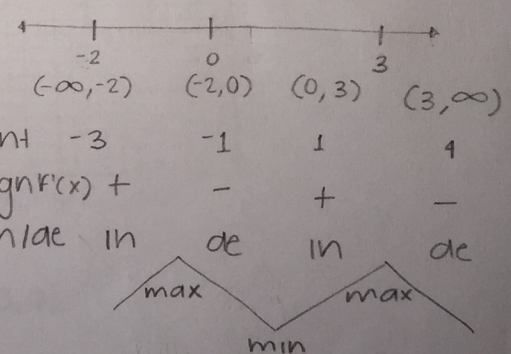 -2 0 3
(-∞,-2) (-2,0) (0,3) (3,∞)
-3 -1 1 4
F'(x) + - + -
in de in de
max max
min